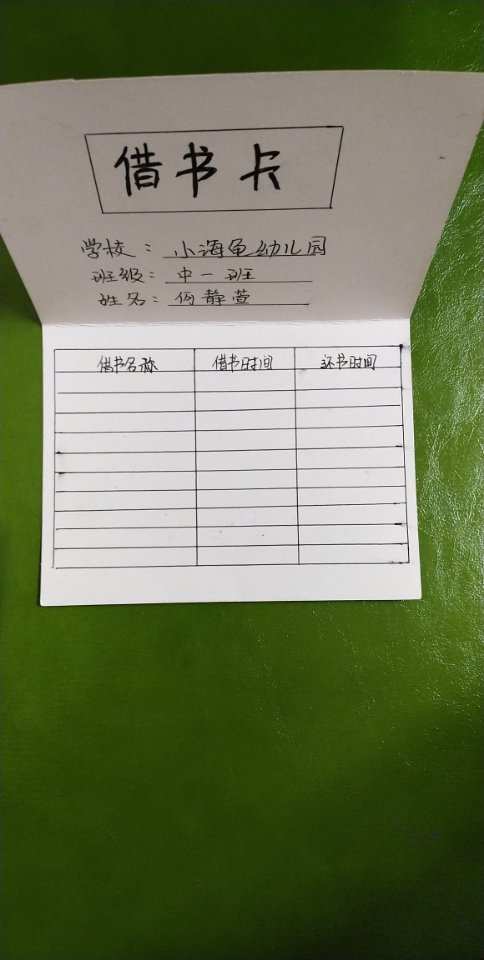 借书卡
学校：小海龟幼儿园
班级：中一班
姓名：何静萱
借书名称 借书时间 还书时间